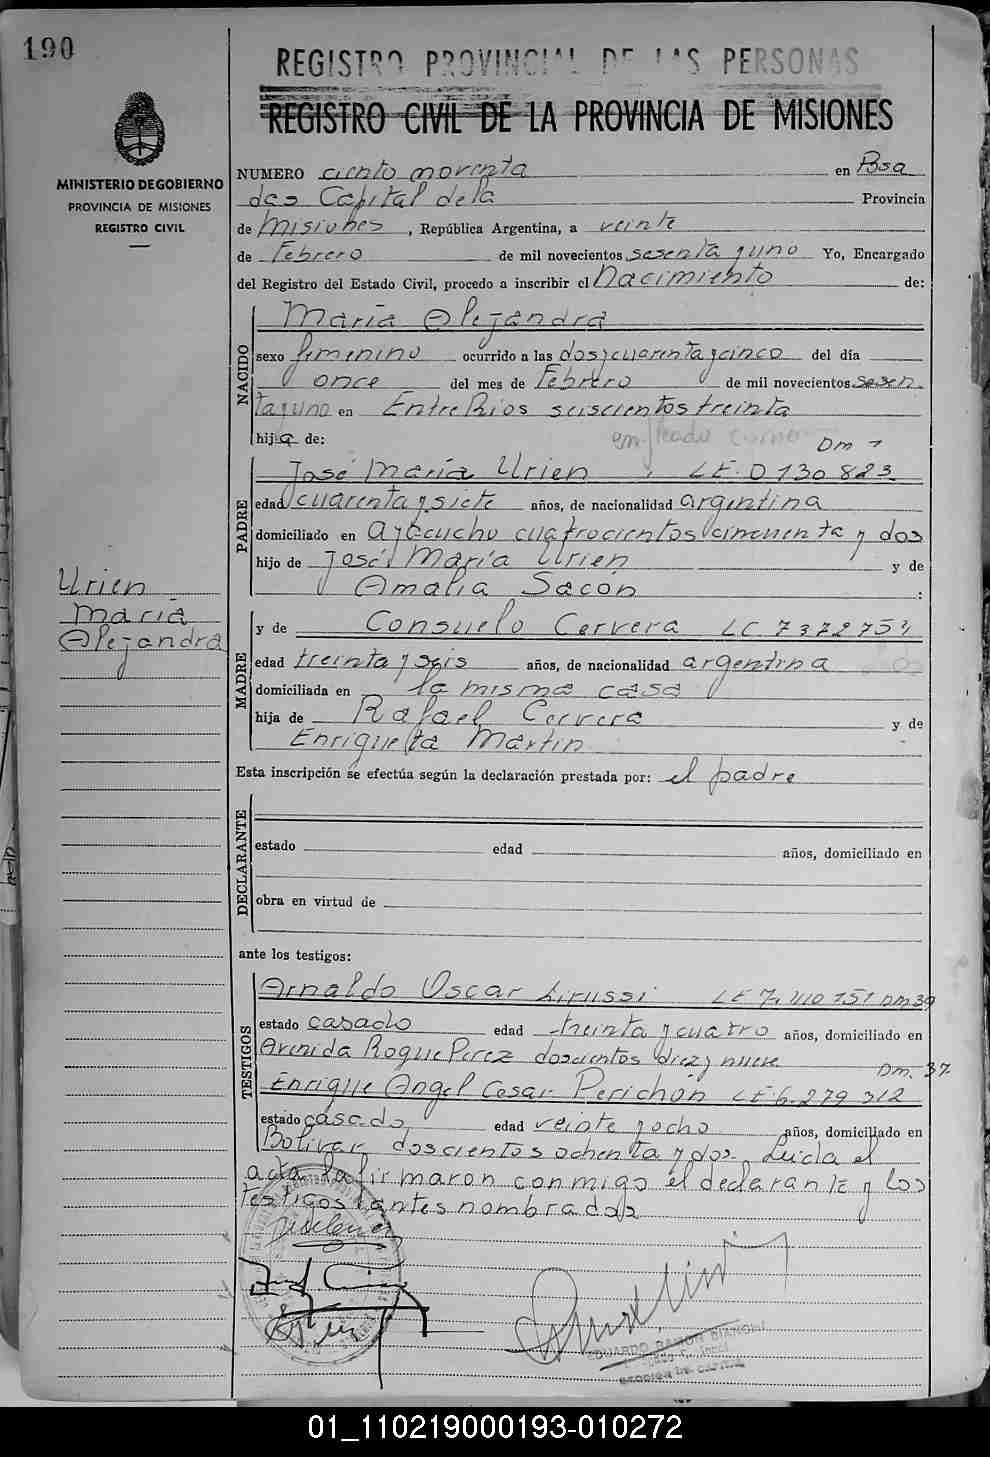 190
REGISTRO PROVINCIAL DE LAS PERSONAS
REGISTRO CIVIL DE LA PROVINCIA DE MISIONES
MINISTERIO DE GOBIERNO
PROVINCIA DE MISIONES
REGISTRO CIVIL
NUMERO ciento noventa en Posa
das Capital de la Provincia
de Misiones, República Argentina, a veinte
de Febrero de mil novecientos sesenta y uno Yo, Encargado
del Registro del Estado Civil, procedo a inscribir el Nacimiento de:
NACIDO
María Alejandra
sexo femenino ocurrido a las dos y cuarenta y cinco del día
once del mes de Febrero de mil novecientos sesen
ta y uno en Entre Rios seiscientos treinta
hija de: empleado
Dm 1
PADRE
José María Urien L E. 0130 823
edad cuarenta y siete años, de nacionalidad argentina
domiciliado en Ayacucho cuatrocientos cincuenta y dos
hijo de José María Urien y de
Amalia Sacón :
Urien
María
Alejandra
MADRE
y de Consuelo Cervera LC. 7372754
edad treinta y seis años, de nacionalidad argentina
domiciliada en la misma casa
hija de Rafael Cervera y de
Enriqueta Martin
Esta inscripción se efectúa según la declaración prestada por: el padre
DECLARANTE
estado edad años, domiciliado en
obra en virtud de
ante los testigos:
TESTIGOS
Arnaldo Oscar Lirussi LE 7. 410 151 DM 39
estado casado edad treinta y cuatro años, domiciliado en
Avenida Roque Perez doscientos diez y nueve
Dm. 37
Enrique Angel Cesar Perichon LE 6. 279 312
estado casado edad veinte y ocho años, domiciliado en
Bolivar doscientos ochenta y dos. Leída el
acta la firmaron conmigo el declarante y los
testigos antes nombrados
EDUARDO RAMON BIANCHI
01_110219000193-010272